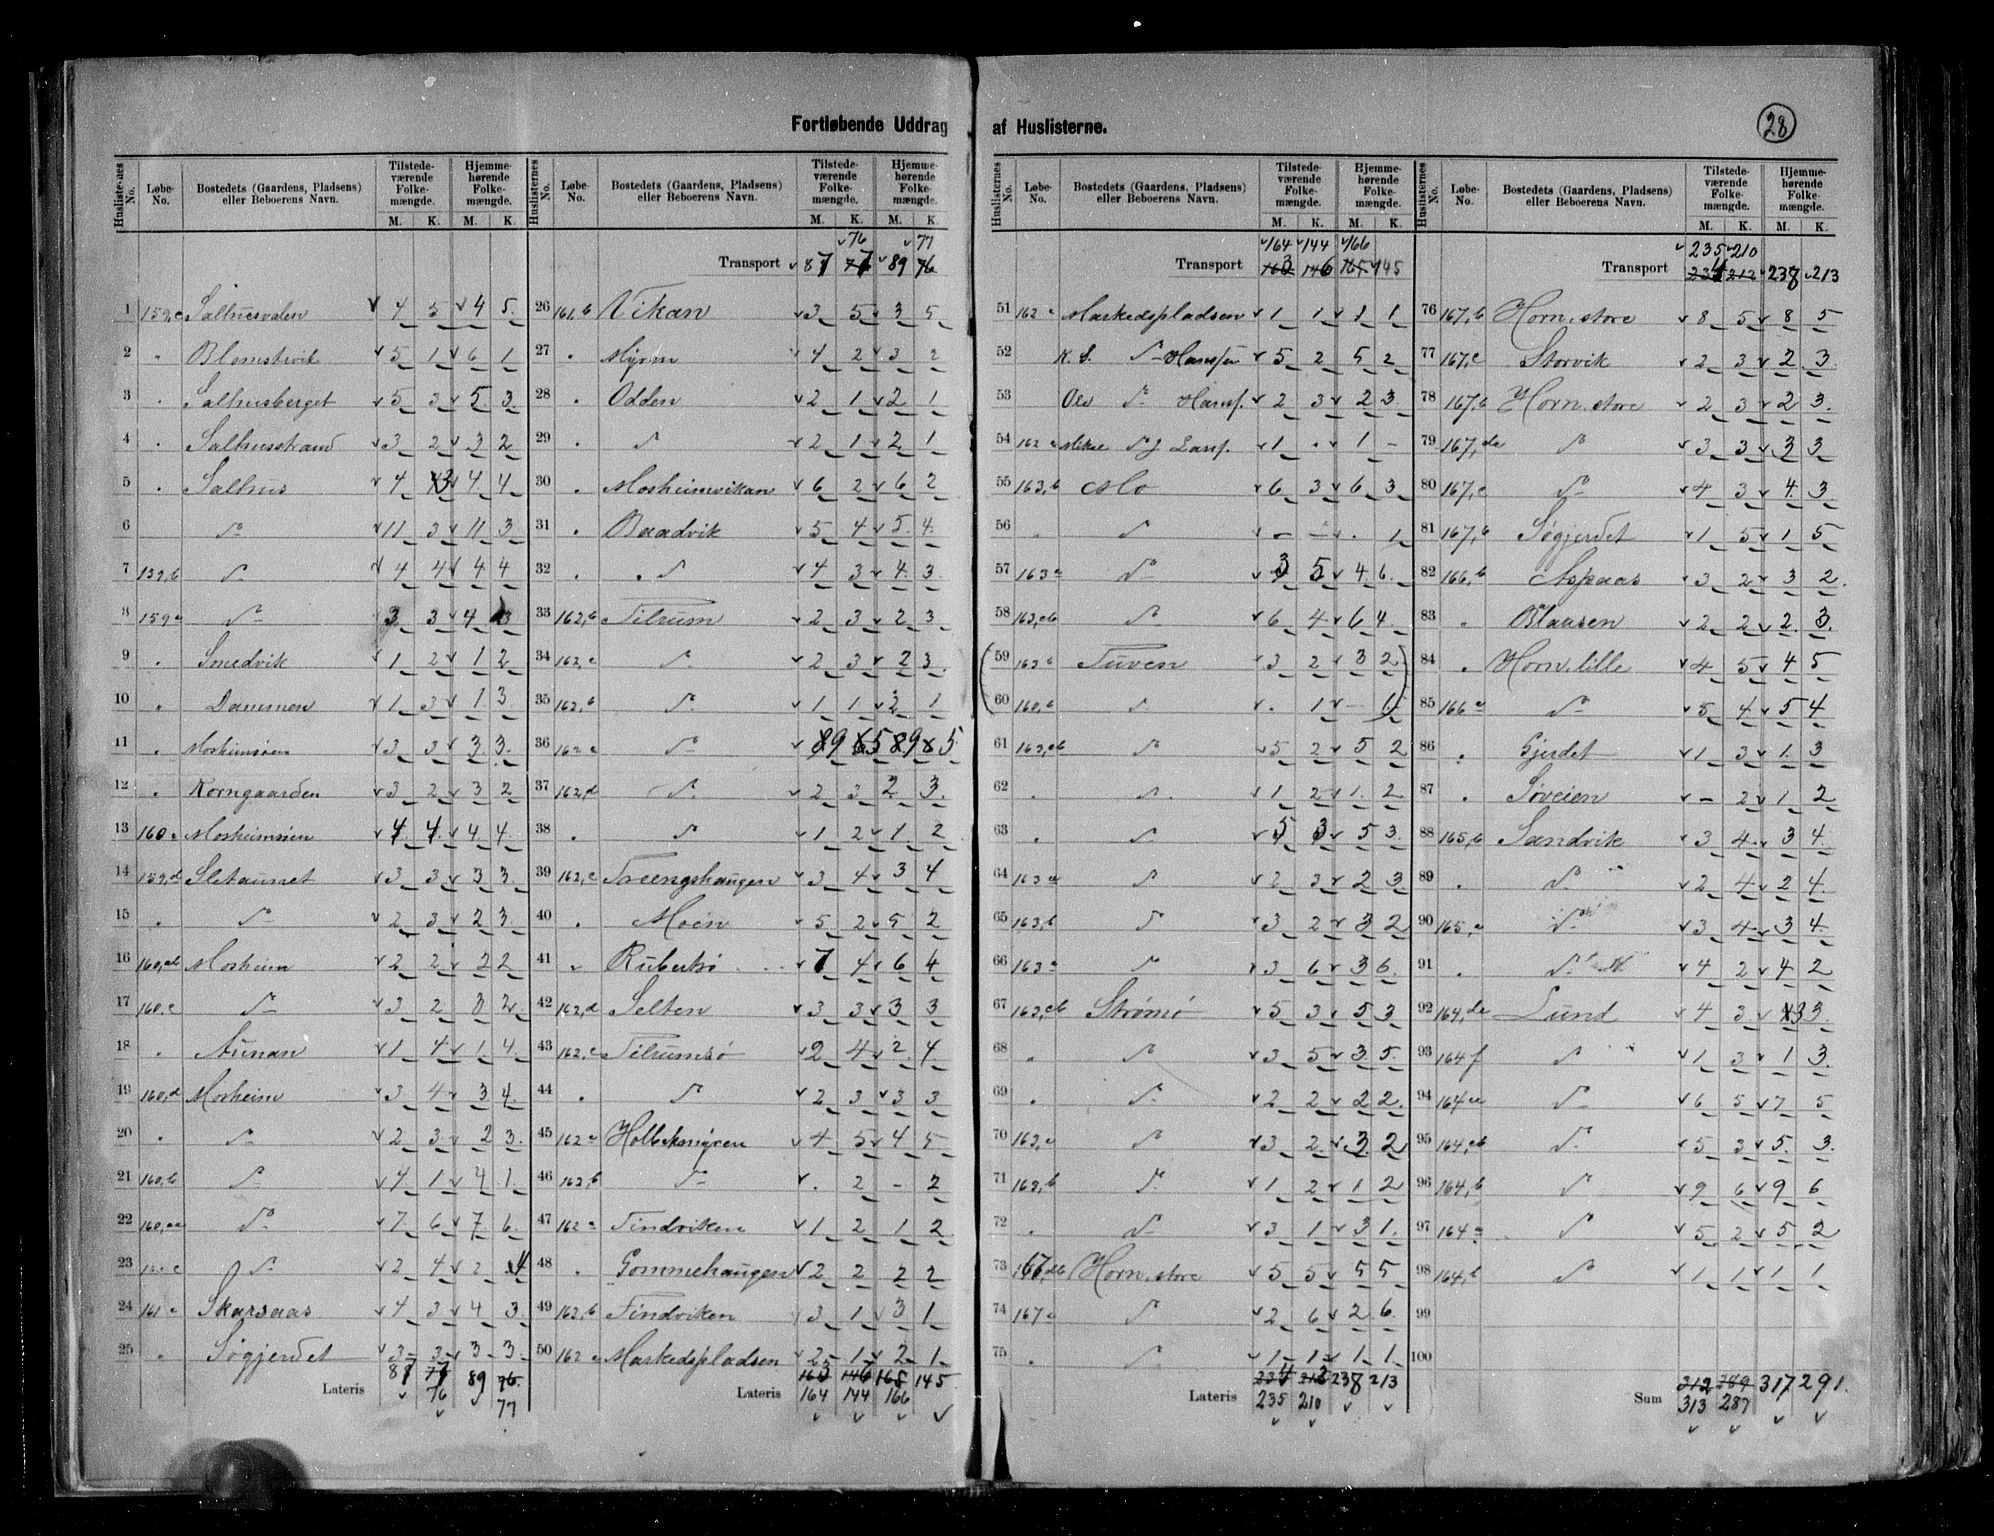 Fortløbende Uddrag af Huslisterne.
28
Huslisternes No. Løbe-No. Bostedets (Gaardens, Pladsens) eller Beboerens Navn. Tilstedeværende Folkemængde. M. K. Hjemmehørende Folkemængde. M. K.
1 159,c Salhusvalen 4 5 4 5
2 " Blomstervik 5 1 6 1
3 " Salhusberget 5 3 5 3
4 " Salhusstrand 3 2 3 2
5 " Salhus 4 3 4 4
6 do 11 3 11 3
7 159,b do 4 4 4 4
8 159a do 3 3 4 3
9 " Smedvik 1 2 1 2
10 " Dammen 1 3 1 3
11 " Mosheimsøen 3 3 3 3
12 " Korngaarden 3 2 3 2
13 160 Mosheimsøen 4 4 4 4
14 159,d Sletaunet 3 3 3 3
15 " do 2 3 2 3
16 Mosheim 2 2 2 2
17 160,c do 3 2 3 2
18 " Aunan 1 4 1 4
19 160,d Mosheim 3 4 3 4
20 " do 2 3 2 3
21 160,b do 4 1 4 1
22 do 7 6 7 6
23 do 2 4 2 4
24 161 Skarsaas 4 3 4 3
25 " Søgjerdet 3 3 3 3
Lateris 87 77 89 76
76 77
Huslisternes No. Løbe-No. Bostedets (Gaardens, Pladsens) eller Beboerens Navn. Tilstedeværende Folkemængde. M. K. Hjemmehørende Folkemængde. M. K.
76 77
Transport 87 77 89 76
26 161,b Vikan 3 5 3 5
27 " Myrm 4 2 3 2
28 " Odden 2 1 2 1
29 " do 2 1 2 1
30 " Mosheimvikan 6 2 6 2
31 " Baadvik 5 4 5 4
32 " do 4 3 4 3
33 162,b Tilrum 2 3 2 3
34 162,c do 2 3 2 3
35 162,b do 1 1 2 1
36 162 do 9 5 9 5
37 162,d do 2 3 2 3
38 " do 1 2 1 2
39 162,c Treengshaugen 3 4 3 4
40 " Moen 5 2 5 2
41 " 7 4 6 4
42 162,d Selten 3 3 3 3
43 162,c Tilrumsø 2 4 2 4
44 " do 2 3 3 3
45 162 Holbekmyren 4 5 4 5
46 162,b do . 2 - 2
47 162 Tindviken 1 2 1 2
48 " Gommehaugen 2 2 2 2
49 162,b Tindviken 3 1 3 1
50 162 Markedspladsen 2 1 2 1
Lateris 163 146 165 145
164 144 166
Huslisternes No. Løbe-No. Bostedets (Gaardens, Pladsens) eller Beboerens Navn. Tilstedeværende Folkemængde. M. K. Hjemmehørende Folkemængde. M. K.
164 144 166
Transport 163 146 165 145
51 162 Markedspladsen 1 1 1 1
52 K. S. do Hansen 5 2 5 2
53 Ole do Hansf. 2 3 2 3
54 162 do J 1 . 1 -
55 163,b Mo 6 3 6 3
56 " do - - . 1
57 163 do 3 5 4 6
58 163,cb do 6 4 6 4
59 Tuven 3 2 3 2
60 do . 1 - 1
61 163,cb do 5 2 5 2
62 " do 1 2 1 2
63 " do 5 3 5 3
64 163 do 2 3 2 3
65 163,b do 3 2 3 2
66 163 do 3 6 3 6
67 Strømø 5 3 5 3
68 " do 3 5 3 5
69 " do 2 2 2 2
70 do 3 2 3 2
71 do 1 2 1 2
72 " do 3 1 3 1
73 Horn, store 5 5 5 5
74 167 do 2 6 2 6
75 " do 1 1 1 1
Lateris 234 212 238 213
235 210
Huslisternes No. Løbe-No. Bostedets (Gaardens, Pladsens) eller Beboerens Navn. Tilstedeværende Folkemængde. M. K. Hjemmehørende Folkemængde. M. K.
235 210
Transport 234 212 238 213
76 167,b Horn, store 8 5 8 5
77 167,c Storvik 2 3 2 3
78 167,b Horn, store 2 3 2 3
79 167,de do 3 3 3 3
80 167,c do 4 3 4 3
81 167,b Søgjerdet 1 5 1 5
82 166,b Aspaas 3 2 3 2
83 " Blaasen 2 2 2 3
84 " Horn, lille 4 5 4 5
85 166 do 5 4 5 4
86 " Gjerdet 1 3 1 3
87 " Søveien - 2 1 2
88 165,b Sandvik 3 4 3 4
89 " do 2 4 2 4
90 165,a do 3 4 3 4
91 " do 4 2 4 2
92 164,de Lund 4 3 3 3
93 164 f do 1 3 1 3
94 164 do 6 5 7 5
95 164,cb do 5 3 5 3
96 164,b do 9 6 9 6
97 164 do 5 2 5 2
98 164,b do 1 1 1 1
99
100
Sum 312 289 317 291.
313 287